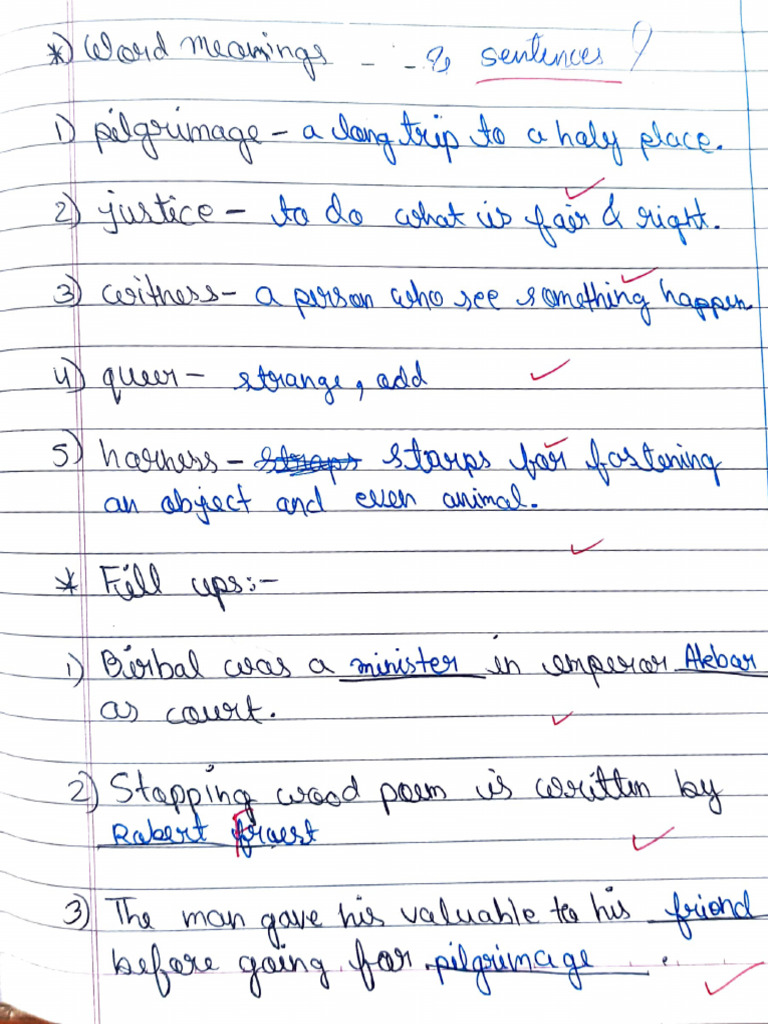 *) Word meanings - - & sentences
1) pilgrimage - a long trip to a holy place.
2) justice - to do what is fair & right.
3) witness - a person who see something happen.
4) queer - strange, odd
5) harness - straps starps for fastening
an object and even animal.
* Fill ups:-
1) Birbal was a minister in emperor Akbar
as court.
2) Stopping wood poem is written by
Robert fraest
3) The man gave his valuable to his friend
before going for pilgrimage.